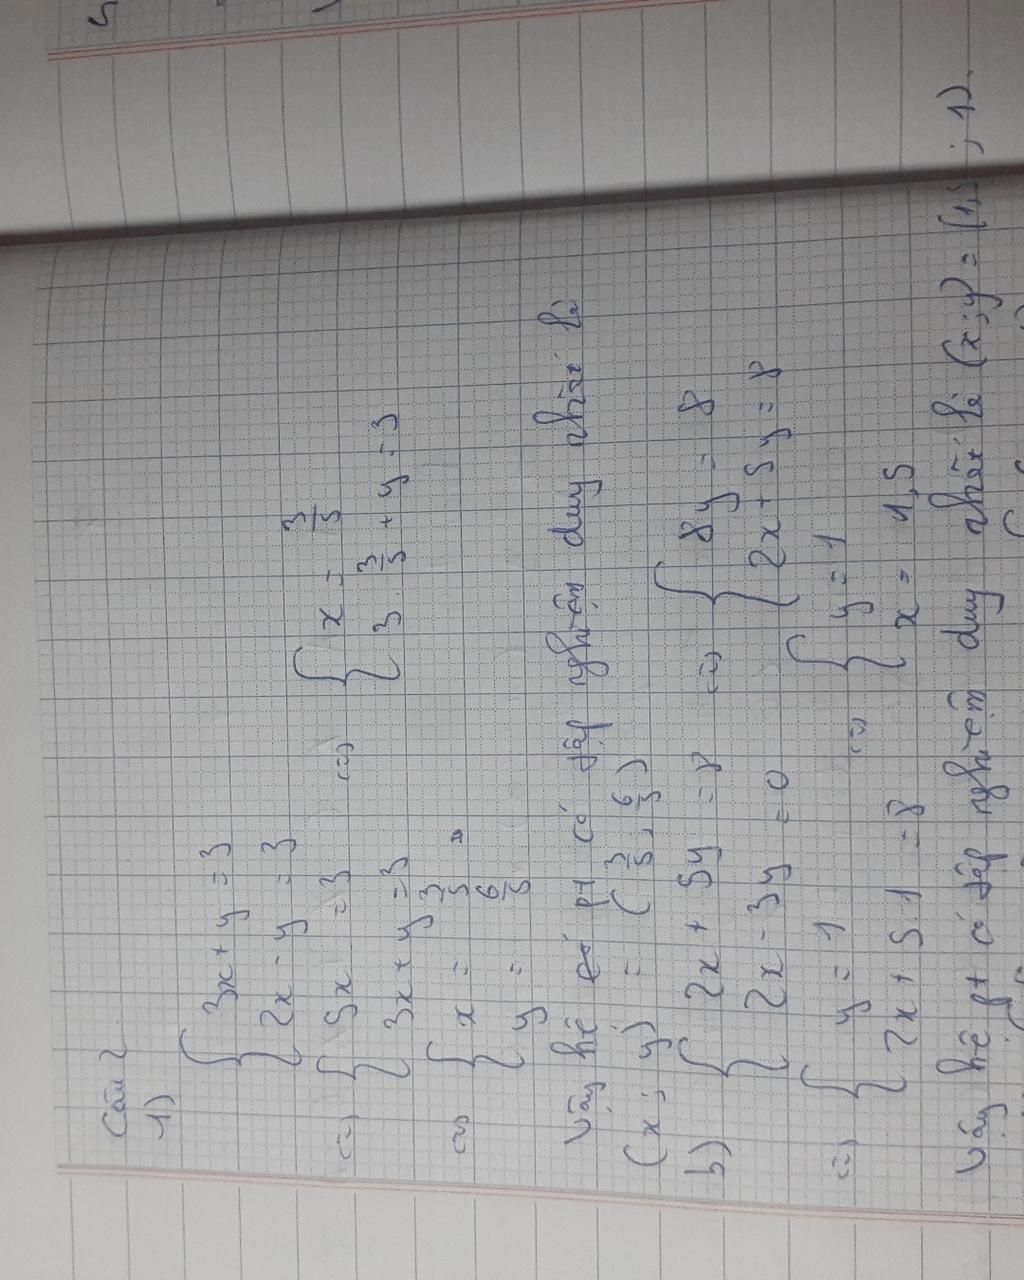 Câu 2
1) { 3x + y = 3
2x - y = 3
(=) { 5x = 3 (=) { x = 3/5
3x + y = 3 3. 3/5 + y = 3
(=) { x = 3/5
y = 6/5
Vậy hệ pt có tập nghiệm duy nhất là
(x; y) = (3/5; 6/5)
b) { 2x + 5y = 8 (=) { 8y = 8
2x - 3y = 0 2x + 5y = 8
(=) { y = 1 (=) { y = 1
2x + 5.1 = 8 x = 1,5
Vậy hệ pt có tập nghiệm duy nhất là (x; y) = (1,5; 1).